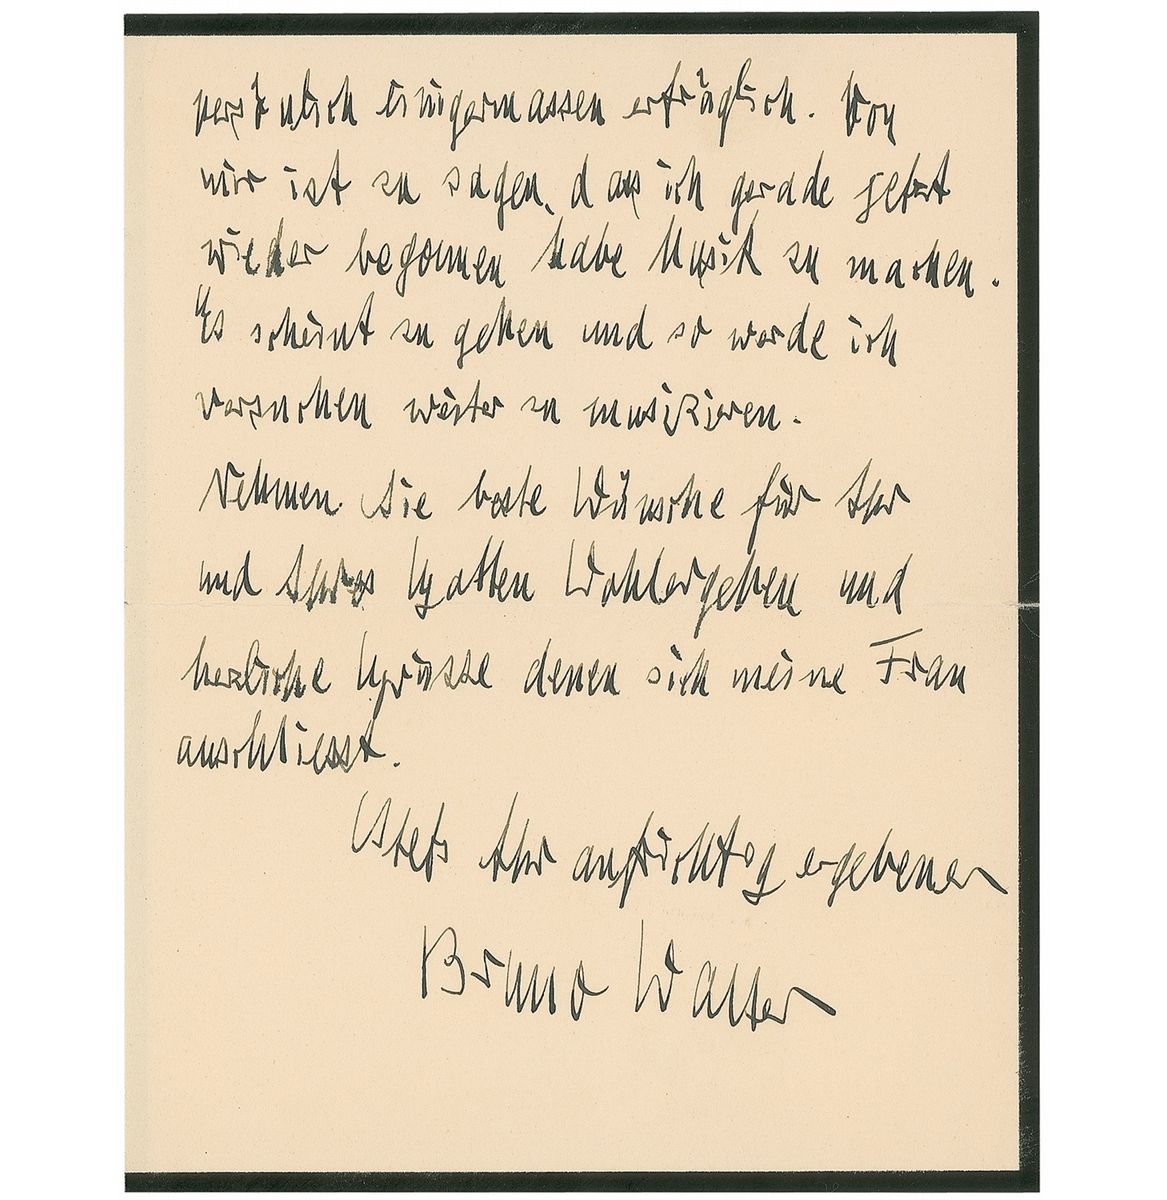 persönlich einigermassen erträglich. Von
mir ist zu sagen, dass ich gerade jetzt
wieder begonnen habe Musik zu machen.
Es scheint zu gehen und so werde ich
versuchen weiter zu musizieren.
Nehmen Sie beste Wünsche für Ihr
und Ihres Gatten Wohlergehen und
herzliche Grüsse denen sich meine Frau
anschliesst.
Stets Ihr aufrichtig ergebener
Bruno Walter